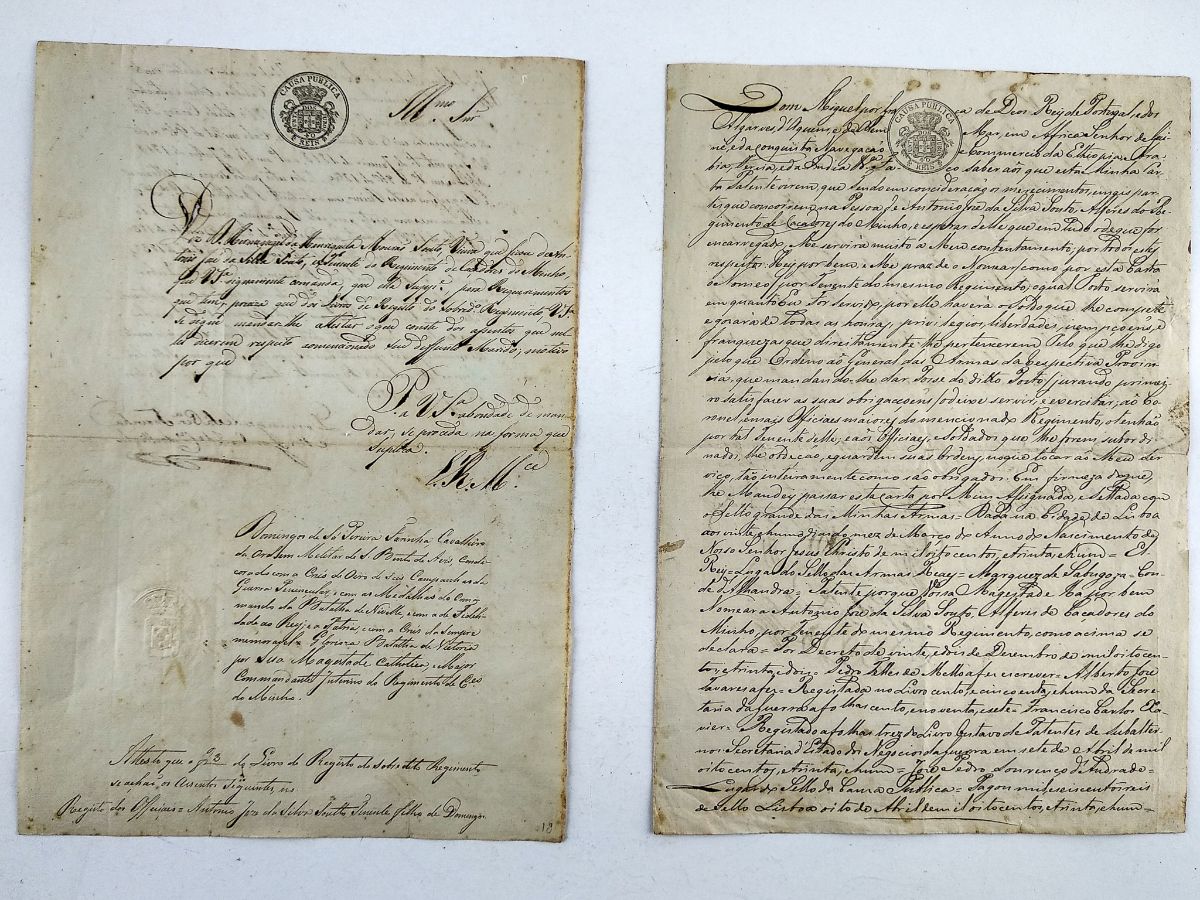 CAUSA PUBLICA
REIS
Illmo Snr
Antonio Joze da Silva Souto, Tenente do Regimento de Caçadores do Minho,
que VSa dignamente comanda, que elle Suppe para Requerimentos
que tem, preciza que dos Livros do Registo do Sobredo Regimento VSa
se digne mandar-lhe attestar o que conste dos assentos que nel-
les dicerem respeito ao mencionado Seu defunto Marido; motivo
por que
P. a VSa a bondade de man-
dar, se proceda na forma que
Suplica.
E. R. Mce
Domingos de Sá Pereira Farinha Cavalleiro
da Ordem Militar de S. Bento de Aviz, Conde-
corado com a Cruz de Oiro de Seis Campanhas da
Guerra Peninsular, com as Medalhas do Com-
mando da Batalha de Nivelle, e com a de Fideli-
dade ao Rey, e a Patria, e com a Cruz da Sempre
memoravel e Glorioza Batalha de Victoria
por Sua Magestade Catholica, Major
Commandante Interino do Regimento de Ces
do Minho.
Attesto que a do Livro do Registo do sobredito Regimento
se achão os Assentos Seguintes
Registo dos Officiaes = Antonio Joze da Silva Soutto Tenente filho de Domingos
18
CAUSA PUBLICA
REIS
Dom Miguel por Graça de Deos, Rey de Portugal, e dos
Algarves, d'Aquem, e dalem Mar, em Africa Senhor de Gui-
né, e da Conquista, Navegação e Commercio da Ethiopia, Ara-
bia, Percia, e da India &a Faço saber aos que esta Minha Car-
ta Patente virem, que tendo em concideração os merecimentos, e mais par-
tes que concorrem na Pessoa de Antonio Joze da Silva Souto, Alferes do Re-
gimento de Caçadores do Minho, e esperar delle que em tudo o de que for
encarregado, Me servirá muito a Meu contentamento; por todos estes
respeitos: Hey por bem, e Me praz de o Nomear, como por esta Carta
o Nomeio, por Tenente do mesmo Regimento, o qual Posto servirá
em quanto Eu For Servido, e por elle haverá o soldo que lhe competir
e gozará de todas as honras, privilegios, liberdades, izempçoens, e
franquezas que direitamente lhe pertencerem. Pelo que lhe digo
pelo que Ordeno ao General das Armas da respectiva Provin-
cia, que mandando-lhe dar Posse do ditto Posto, jurando primei-
ro satisfazer as suas obrigaçoens, o deixe servir, e exercitar; ao Co-
ronel, e mais Officiaes maiores do mencionado Regimento, o tenhão
por tal Tenente delle, e aos Officiaes, e Soldados que lhe forem subordi-
nados, lhe obedeção, e guardem suas Ordens, no que tocar ao Meu Ser-
viço, tão inteiramente como são obrigados. Em firmeza do que,
lhe Mandey passar esta carta por Mim Assignada, e Sellada com
o Sello grande das Minhas Armas = Dada na Cidade de Lisboa
aos vinte, e hum dias do mez de Março do Anno do Nascimento de
Nosso Senhor Jesus Christo de mil oito centos, e trinta, e hum = El
Rey = Lugar do Sello das Armas Reaes = Marquez de Sabugoza = Con-
de d'Alhandra = Patente por que Vossa Magestade Ha por bem
Nomear a Antonio Joze da Silva Souto, Alferes de Caçadores do
Minho, por Tenente do mesmo Regimento, como acima se
declara = Por Decreto de vinte, e dois de Dezembro de mil oito cen-
tos, e trinta, = Pedro Telles de Mello a fez escrever = Alberto Joze
Tavares a fez = Registada no Livro cento, e cincoenta, e hum da Secre-
taria da Guerra a folhas cento, e noventa, e sete = Francisco Carlos Xa-
vier = Registado a folhas trez do Livro Oitavo de Patentes de Subalter-
nos Secretaria d'Estado dos Negocios da Guerra em sete de Abril de mil
oito centos, e trinta, e hum = Pedro Lourenço d'Andrade =
Lugar do Sello da Cauza Publica = Pagou mil e seiscentos reis
de Sello Lisboa oito de Abril de mil oito centos, e trinta, e hum =